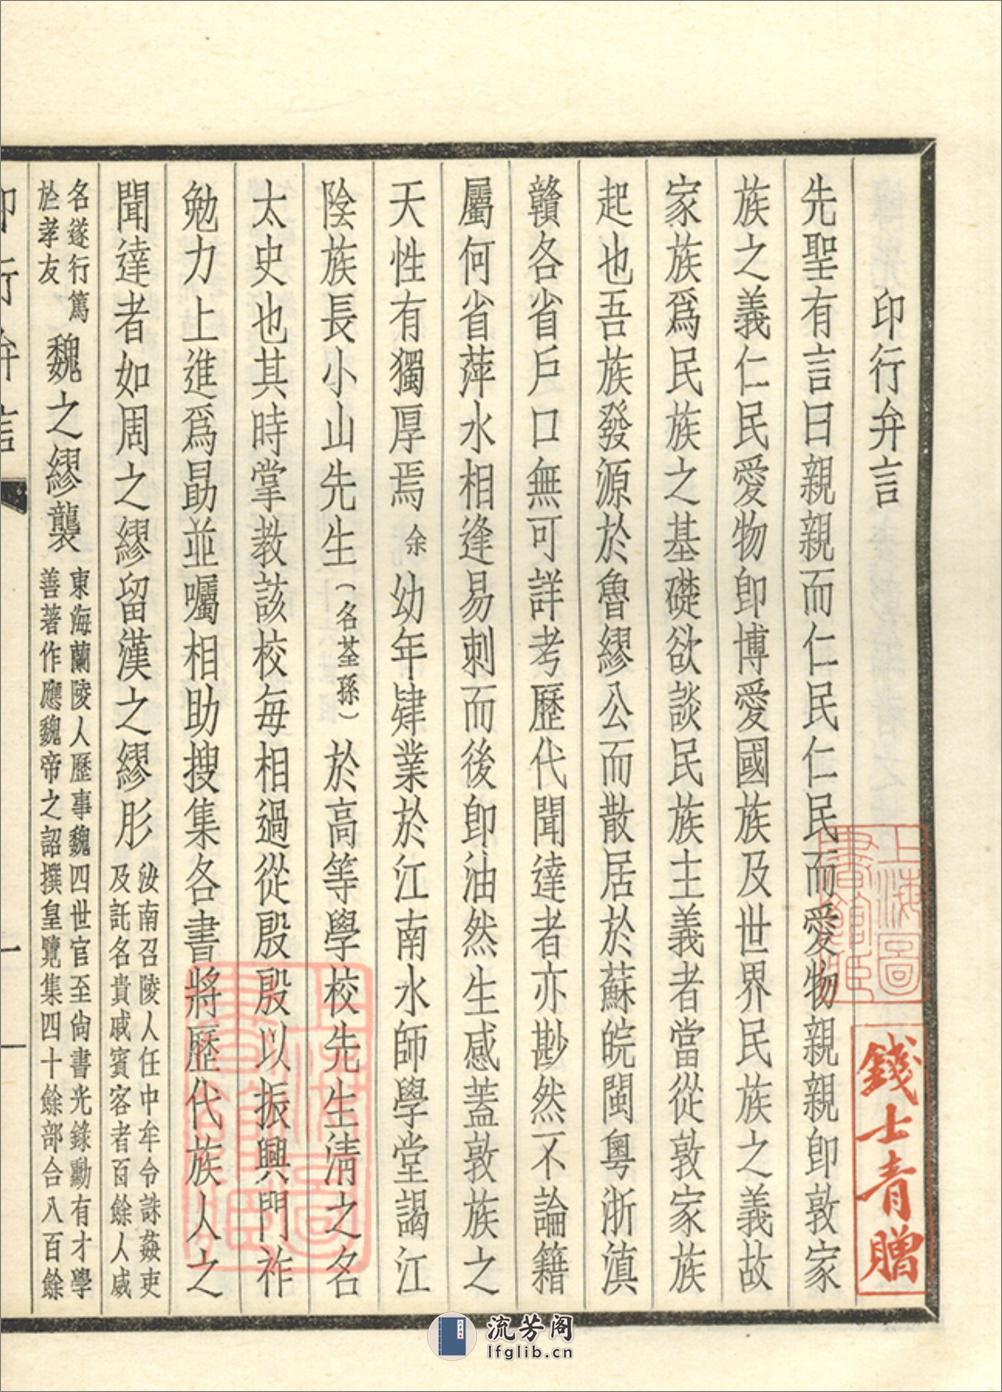 印行弁言
先聖有言曰親親而仁民仁民而愛物親親卽敦家
族之義仁民愛物卽博愛國族及世界民族之義故
家族爲民族之基礎欲談民族主義者當從敦家族
起也吾族發源於魯繆公而散居於蘇皖閩粵浙滇
贛各省戶口無可詳考歷代聞達者亦尠然不論籍
屬何省萍水相逢易刺而後卽油然生感蓋敦族之
天性有獨厚焉余幼年肄業於江南水師學堂謁江
陰族長小山先生(名荃孫)於高等學校先生清之名
太史也其時掌教該校每相過從殷殷以振興門祚
勉力上進爲勗並囑相助搜集各書將歷代族人之
聞達者如周之繆留漢之繆肜
汝南召陵人任中牟令誅姦吏
及託名貴戚賓客者百餘人威
名遂行篤
於孝友
魏之繆襲
東海蘭陵人歷事魏四世官至尚書光錄勳有才學
善著作應魏帝之詔撰皇覽集四十餘部合八百餘
印行弁言
一
上海圖
書館藏
錢士青贈
上海圖
書館藏
流芳阁
lfglib.cn